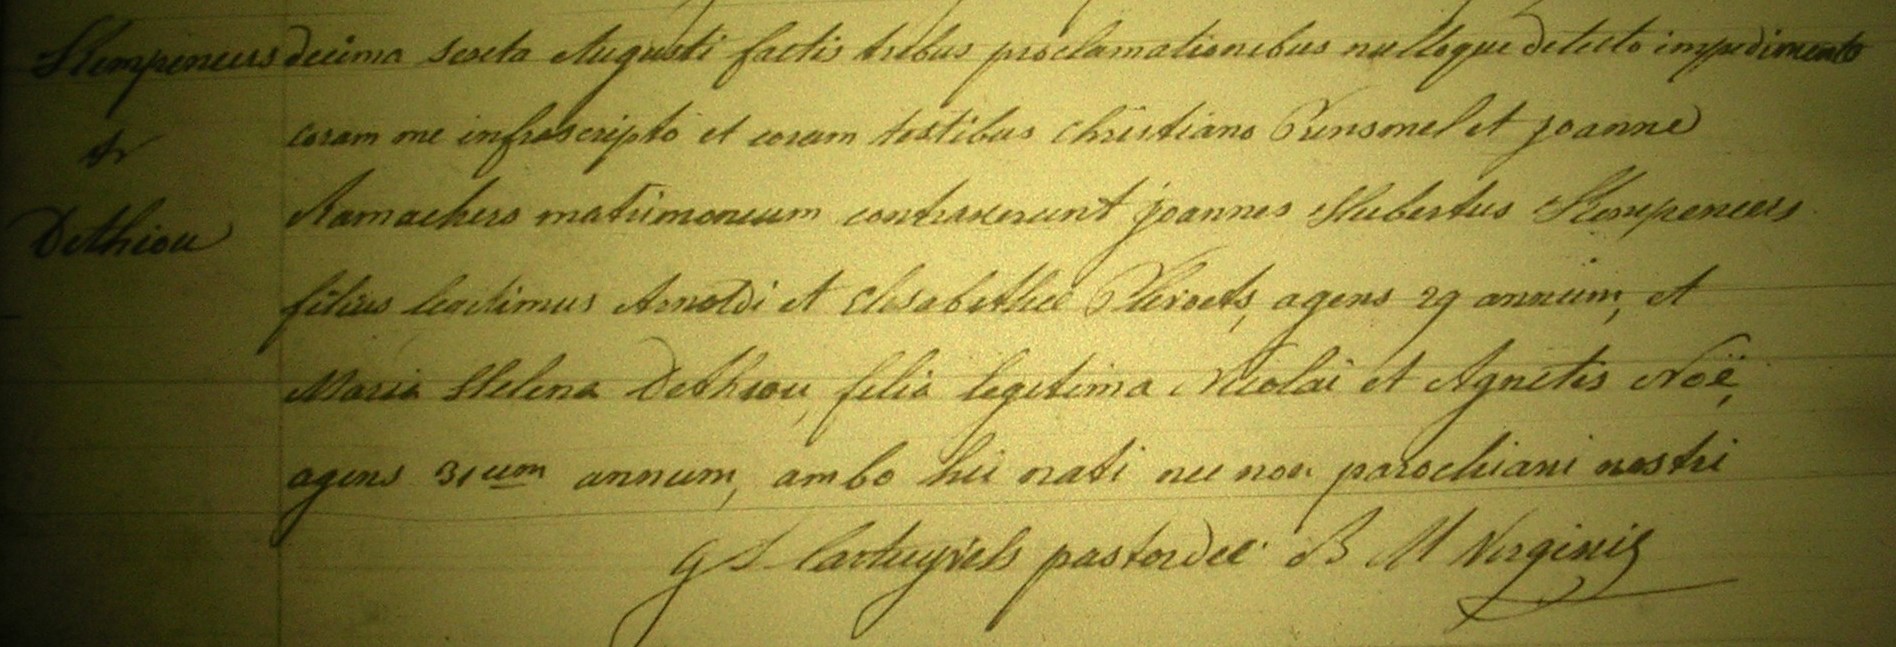 Kempeneers decima sexta Augusti factis tribus proclamationibus nulloque detecto impedimento
et coram me infrascripto et coram testibus christiano Prensonel et joanne
Dethiou Ramachers matrimonium contraxerunt joannes Hubertus Kempeneers
filius legitimus Arnoldi et Elisabethae Pluroets, agens 29 annum, et
Maria Helena Dethiou, filia legitima Nicolai et Agnetis Noë,
agens 31um annum, ambo hic nati nec non parochiani nostri
G L Cartuyvels pastor B M Virginis